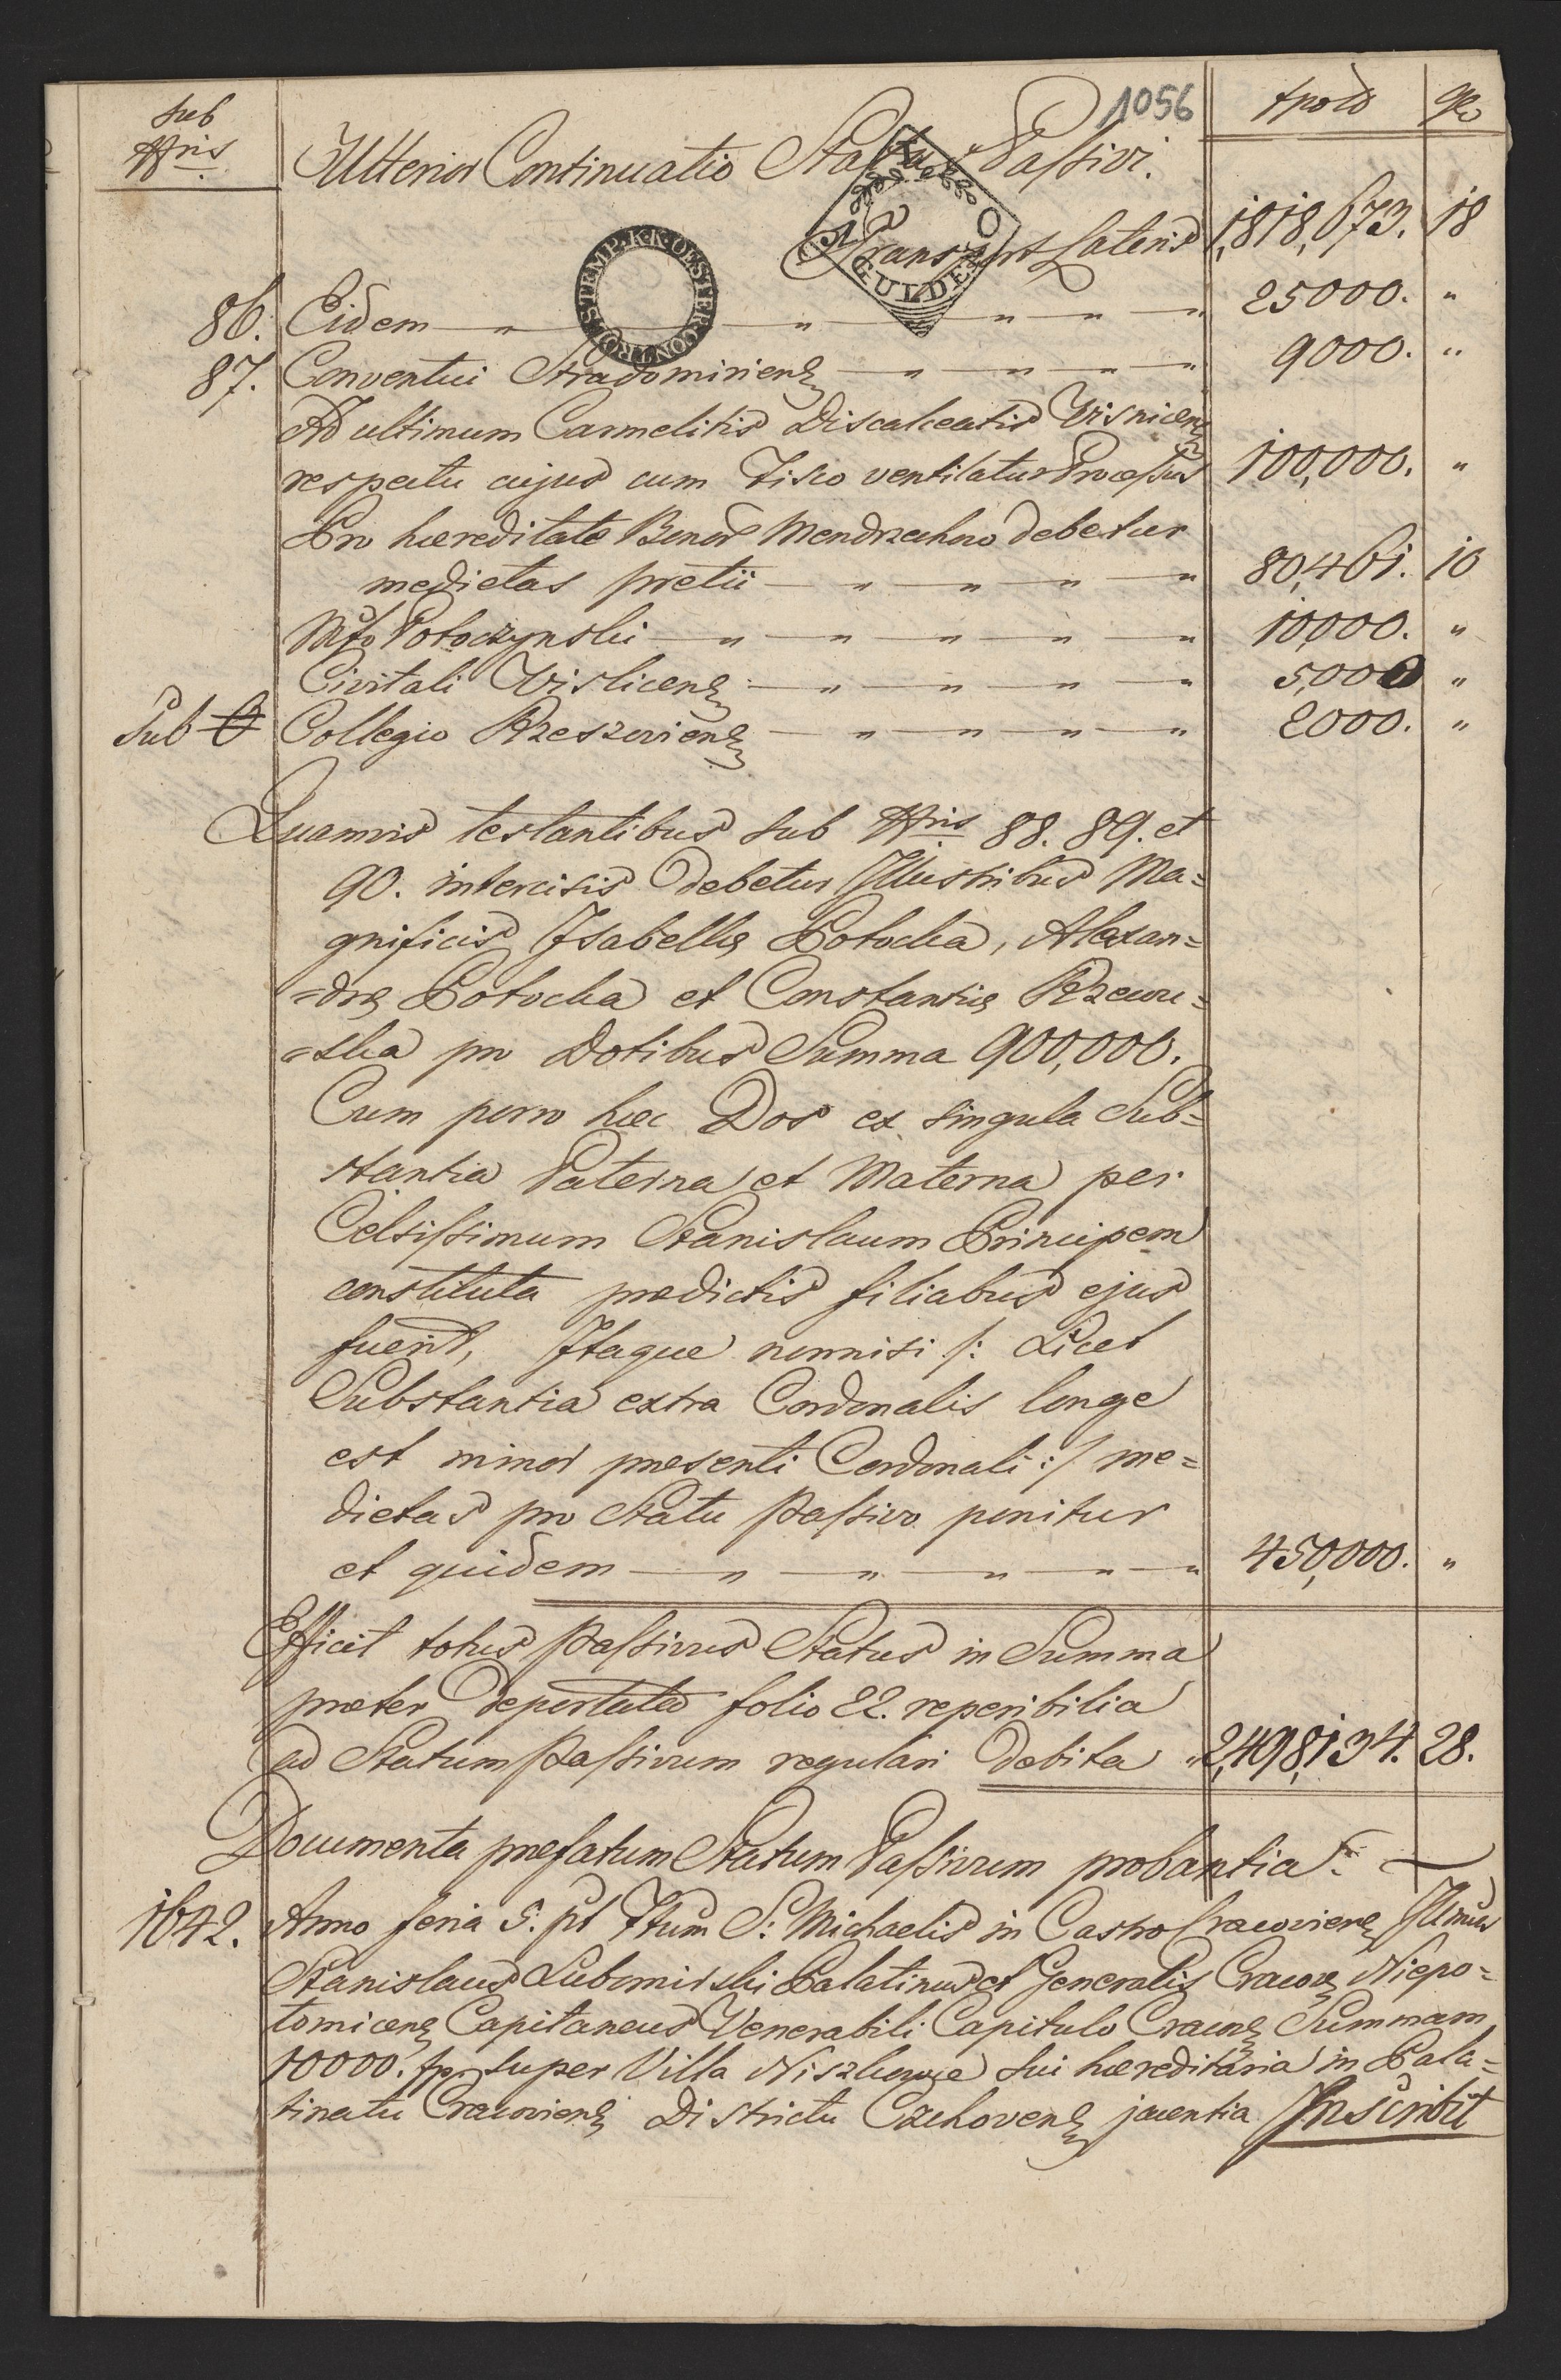 1056
Sub Nris
Ulterior Continuatio Status Passivi.
fpold gro
Transport Lateris 1,818,673. 18
STEMP. K.K. OESTER. CONTROL
GULDEN
86. Eidem — " — " — " — " — " 25000. "
87. Conventui Stradomiriens — " — " — " — " 9000. "
Ad ultimum Carmelitis Discalceatis Visnicens
respectu cujus cum Fisco ventilatur Processus 100,000. "
Pro hæreditate Bonor Mendrzechow debetur
medietas pretii — " — " — " — " 80,461. 10
Mfo Potoczynski — " — " — " — " — " 10,000. "
Civitali Vislicens — " — " — " — " 5,000 "
Sub O Collegio Rzeszoviens — " — " — " — " 2000. "
Quamvis testantibus sub Nris 88. 89. et
90. intercisis debetur Illustribus Ma=
gnificis Isabellæ Potocka, Alexan=
=dræ Potocka et Constantiæ Rzewu=
=ska pro Dotibus Summa 900,000.
Cum porro hæc Dos ex singula Sub=
stantia Paterna et Materna per
Celsissimum Stanislaum Principem
constituta prædictis filiabus ejus
fuerit, Itaque nonnisi /: Licet
Substantia extra Cordonalis longe
est minor præsenti Cordonali :/ me=
dietas pro Statu passivo ponitur
et quidem — " — " — " — " — " 450,000. "
Efficit totus passivus Status in Summa
præter deportata folio 22. reperibilia
ad Statum passivum regulari debita " 2,498,134. 28.
Documenta præfatum Statum Passivum probantia. —
1642. Anno feria 5: pt Ftum S: Michaelis in Castro Cracoviens Illmus
Stanislaus Lubomirski Palatinus et Generalis Cracov Niepo=
tomicens Capitaneus Venerabili Capitulo Cracovs Summam
10000. fp. super Villa Niszkowice sui hæreditaria in Pala=
tinatu Cracoviens Districtu Czchovens jacentia Inscribit